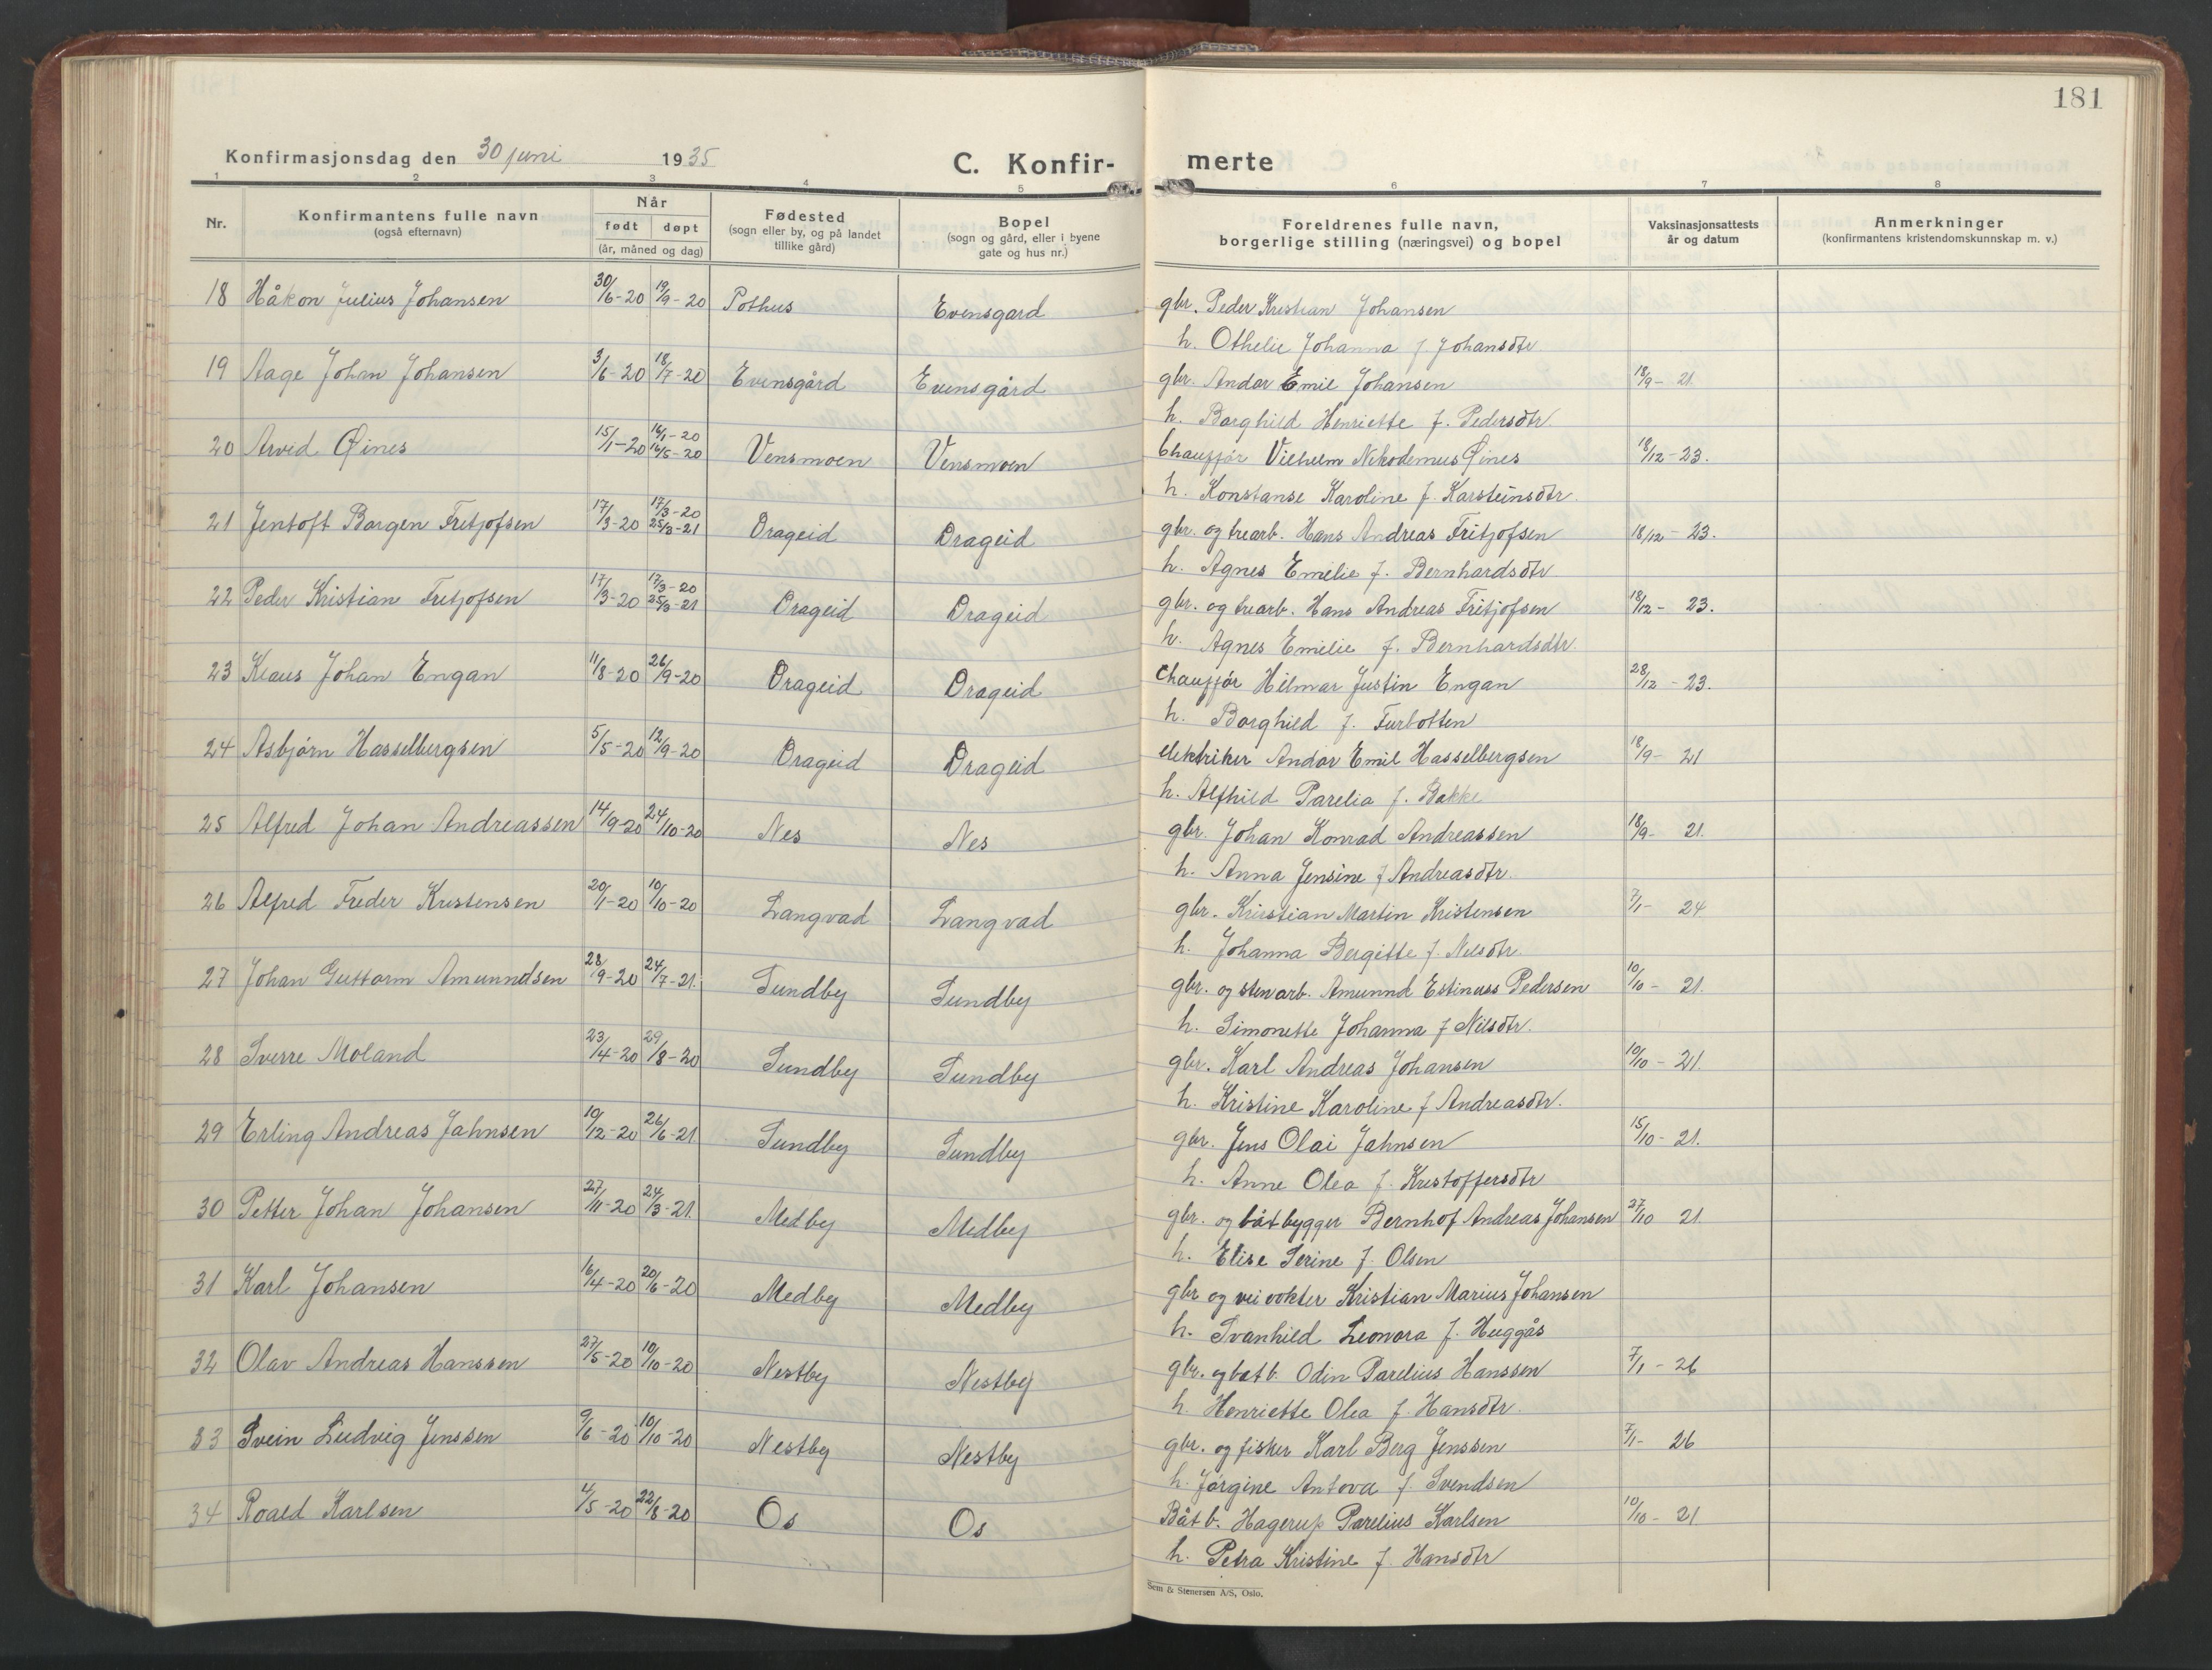 181
Konfirmasjonsdag den 30 juni 1935
C. Konfirmerte
1 2 3 4 5 6 7 8
Nr.
Konfirmantens fulle navn
(også efternavn)
Når
født døpt
(år, måned og dag)
Fødested
(sogn eller by, og på landet
tillike gård)
Bopel
(sogn og gård, eller i byene
gate og hus nr.)
Foreldrenes fulle navn,
borgerlige stilling (næringsvei) og bopel
Vaksinasjonsattests
år og datum
Anmerkninger
(konfirmantens kristendomskunnskap m. v.)
18 Håkon Julius Johansen 30/6-20 19/9-20 Pothus Evensgard gbr. Peder Kristian Johansen
h. Othelie Johanna f. Johansdtr
19 Aage Johan Johansen 3/6-20 18/7-20 Evensgård Evensgård gbr. Andor Emil Johansen 18/9- 21.
h. Borghild Henriette f. Pedersdtr
20 Arvid Øines 15/1-20 16/1-20 16/5-20 Vensmoen Vensmoen Chauffør Vilhelm Nikodemus Øines 18/12-23.
h. Konstanse Karoline f. Karsteinsdtr.
21 Jentoft Borgen Fritjofsen 17/3-20 17/3-20 25/3-21 Drageid Drageid gbr. og trearb. Hans Andreas Fritjofsen 18/12-23.
h. Agnes Emelie f. Bernhardsdtr
22 Peder Kristian Fritjofsen 17/3-20 17/3-20 25/3-21 Drageid Drageid gbr. og trearb. Hans Andreas Fritjofsen 18/12- 23.
h. Agnes Emelie f. Bernhardsdtr.
23 Klaus Johan Engan 11/8-20 26/9-20 Drageid Drageid Chauffør Hilmar Justin Engan 28/12-23.
h. Borghild f. Furbotten
24 Asbjørn Hasselbergsen 5/5-20 12/9-20 Drageid Drageid elektriker Andor Emil Hasselbergsen 18/9- 21
h. Alfhild Parelia f. Bakke
25 Alfred Johan Andreassen 14/9-20 24/10-20 Nes Nes gbr. Johan Konrad Andreassen 18/9- 21.
h. Anna Jensine f Andreasdtr.
26 Alfred Freder Kristensen 20/1-20 10/10-20 Langvad Langvad gbr. Kristian Martin Kristensen 7/1- 24
h. Johanna Bergitte f. Nilsdtr.
27 Johan Guttorm Amunndsen 28/9-20 24/7-21. Sundby Sundby gbr. og stenarb. Amunnd Estinuss Pedersen 10/10- 21.
h. Simonette Johanna f Nilsdtr.
28 Sverre Moland 23/4-20 29/8-20 Sundby Sundby gbr. Karl Andreas Johansen 10/10-21.
h. Kristine Karoline f Andreasdtr.
29 Erling Andreas Jahnsen 10/12-20 26/6-21 Sundby Sundby gbr. Jens Olai Jahnsen 15/10-21.
h. Anne Olea f. Kristoffersdtr
30 Petter Johan Johansen 27/11-20 24/3-21. Medby Medby gbr. og båtbygger Bernhof Andreas Johansen 27/10 21
h. Elise Serine f. Olsen
31 Karl Johansen 16/4-20 20/6-20 Medby Medby gbr og veivokter Kristian Marius Johansen
h. Svanhild Leonora f. Huggås
32 Olav Andreas Hanssen 27/5-20 10/10-20 Nestby Nestby gbr. og båtb. Odin Parelius Hanssen 7/1-26
h. Henriette Olea f. Hansdtr.
33 Svein Ludvig Jenssen 9/6-20 10/10-20 Nestby Nestby gbr. og fisker Karl Berg Jenssen 7/1- 26
h. Jørgine Antova f. Svendsen
34 Roald Karlsen 4/5-20 22/8-20 Os Os Båtb. Hagerup Parelius Karlsen 10/10- 21
h. Petra Kristine f. Hansdtr
Sem & Stenersen A/S, Oslo.